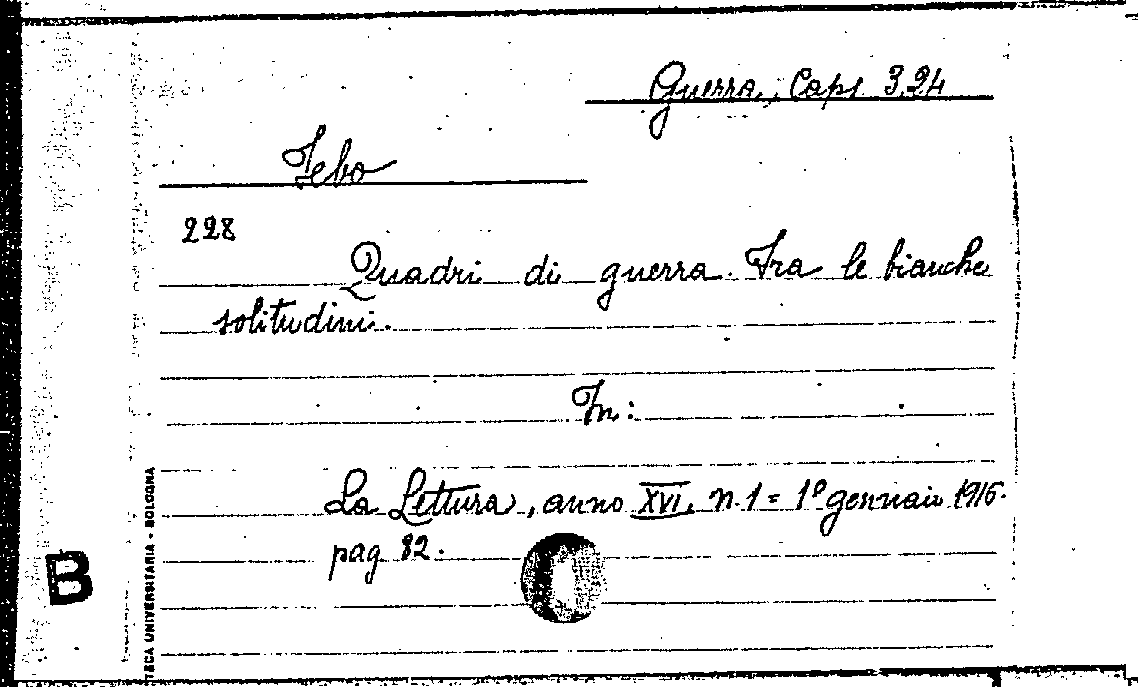 Guerra, Caps 3.24
Febo
228
Quadri di guerra. Fra le bianche
solitudini.
In:
La Lettura, anno XVI, n. 1 = 1º gennaio 1916.
pag 82.
B
TECA UNIVERSITARIA - BOLOGNA